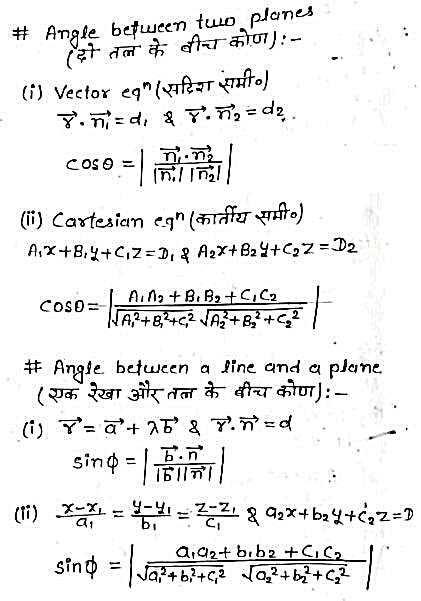 # Angle between two planes
(दो तल के बीच कोण):-
(i) Vector eqⁿ (सदिश समी०)
r⃗·n⃗₁ = d₁ & r⃗·n⃗₂ = d₂.
cosθ = | n⃗₁·n⃗₂ / |n⃗₁| |n⃗₂| |
(ii) Cartesian eqⁿ (कार्तीय समी०)
A₁x+B₁y+C₁z=D₁ & A₂x+B₂y+C₂z=D₂
cosθ = | A₁A₂+B₁B₂+C₁C₂ / √A₁²+B₁²+C₁² √A₂²+B₂²+C₂² |
# Angle between a line and a plane
(एक रेखा और तल के बीच कोण):-
(i) r⃗ = a⃗ + λb⃗ & r⃗·n⃗ = d
sinϕ = | b⃗·n⃗ / |b⃗||n⃗| |
(ii) x-x₁/a₁ = y-y₁/b₁ = z-z₁/c₁ & a₂x+b₂y+c₂z=D
sinϕ = | a₁a₂+b₁b₂+c₁c₂ / √a₁²+b₁²+c₁² √a₂²+b₂²+c₂² |